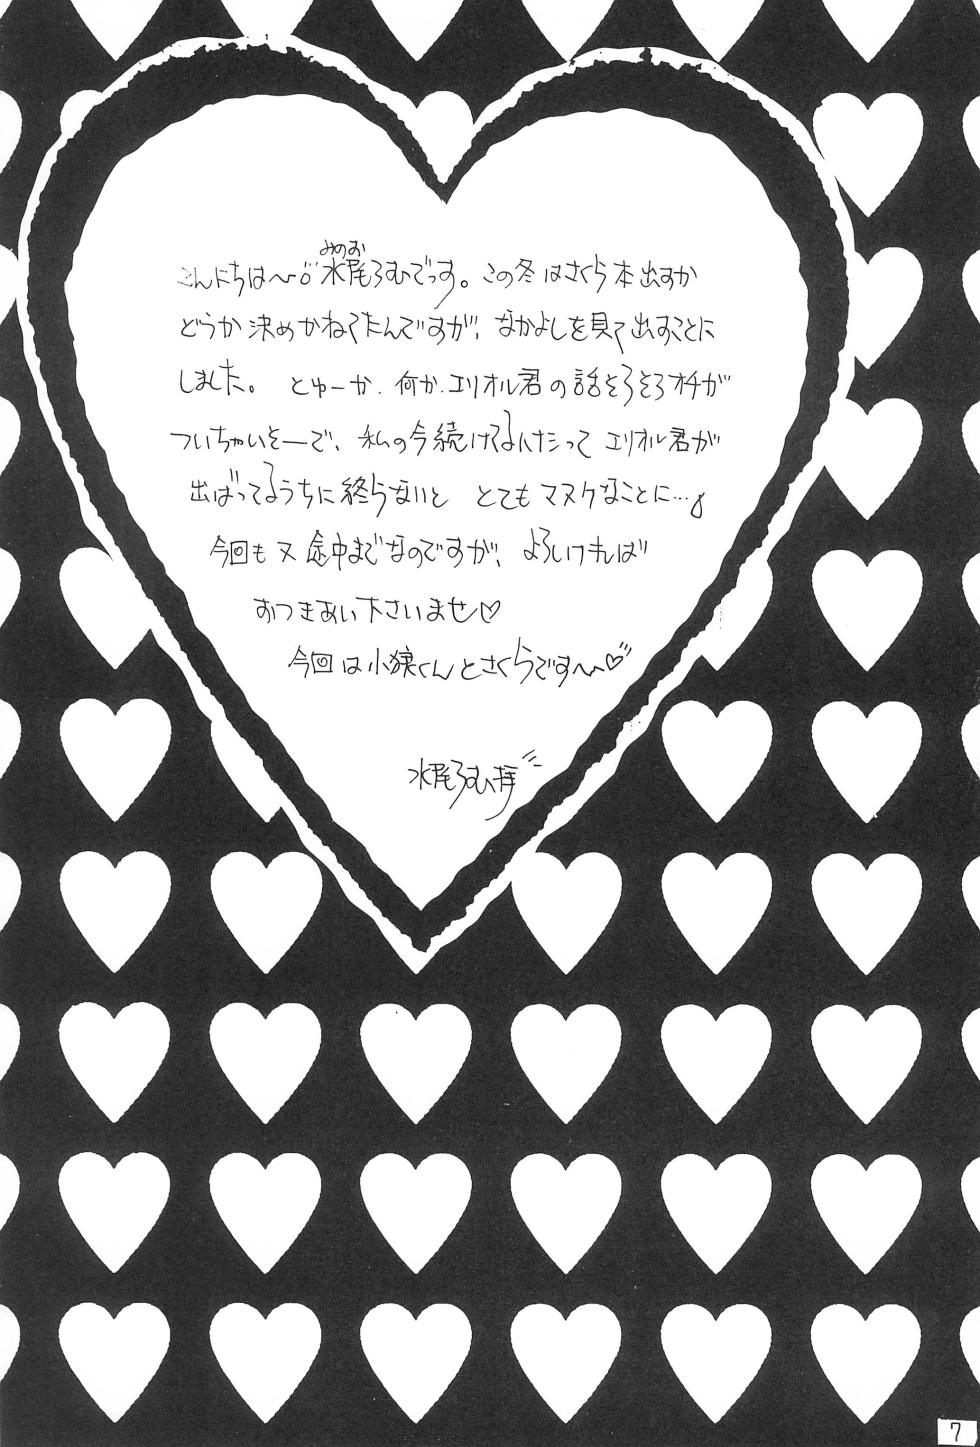 みのお
こんにちは〜♡水尾ろむでっす。この冬はさくら本出すか
どうか決めかねてたんですが、なかよしを見て出すことに
しました。とゅーか、何か、エリオル君の話そろそろオチが
ついちゃいそーで、私の今続けてるはなしって エリオル君が
出ばってるうちに終らないと とてもマヌケなことに…
今回も又途中までなのですが、よろしければ
おつきあい下さいませ♡
今回は小狼くんとさくらです〜♡
水尾ろむ拝
7